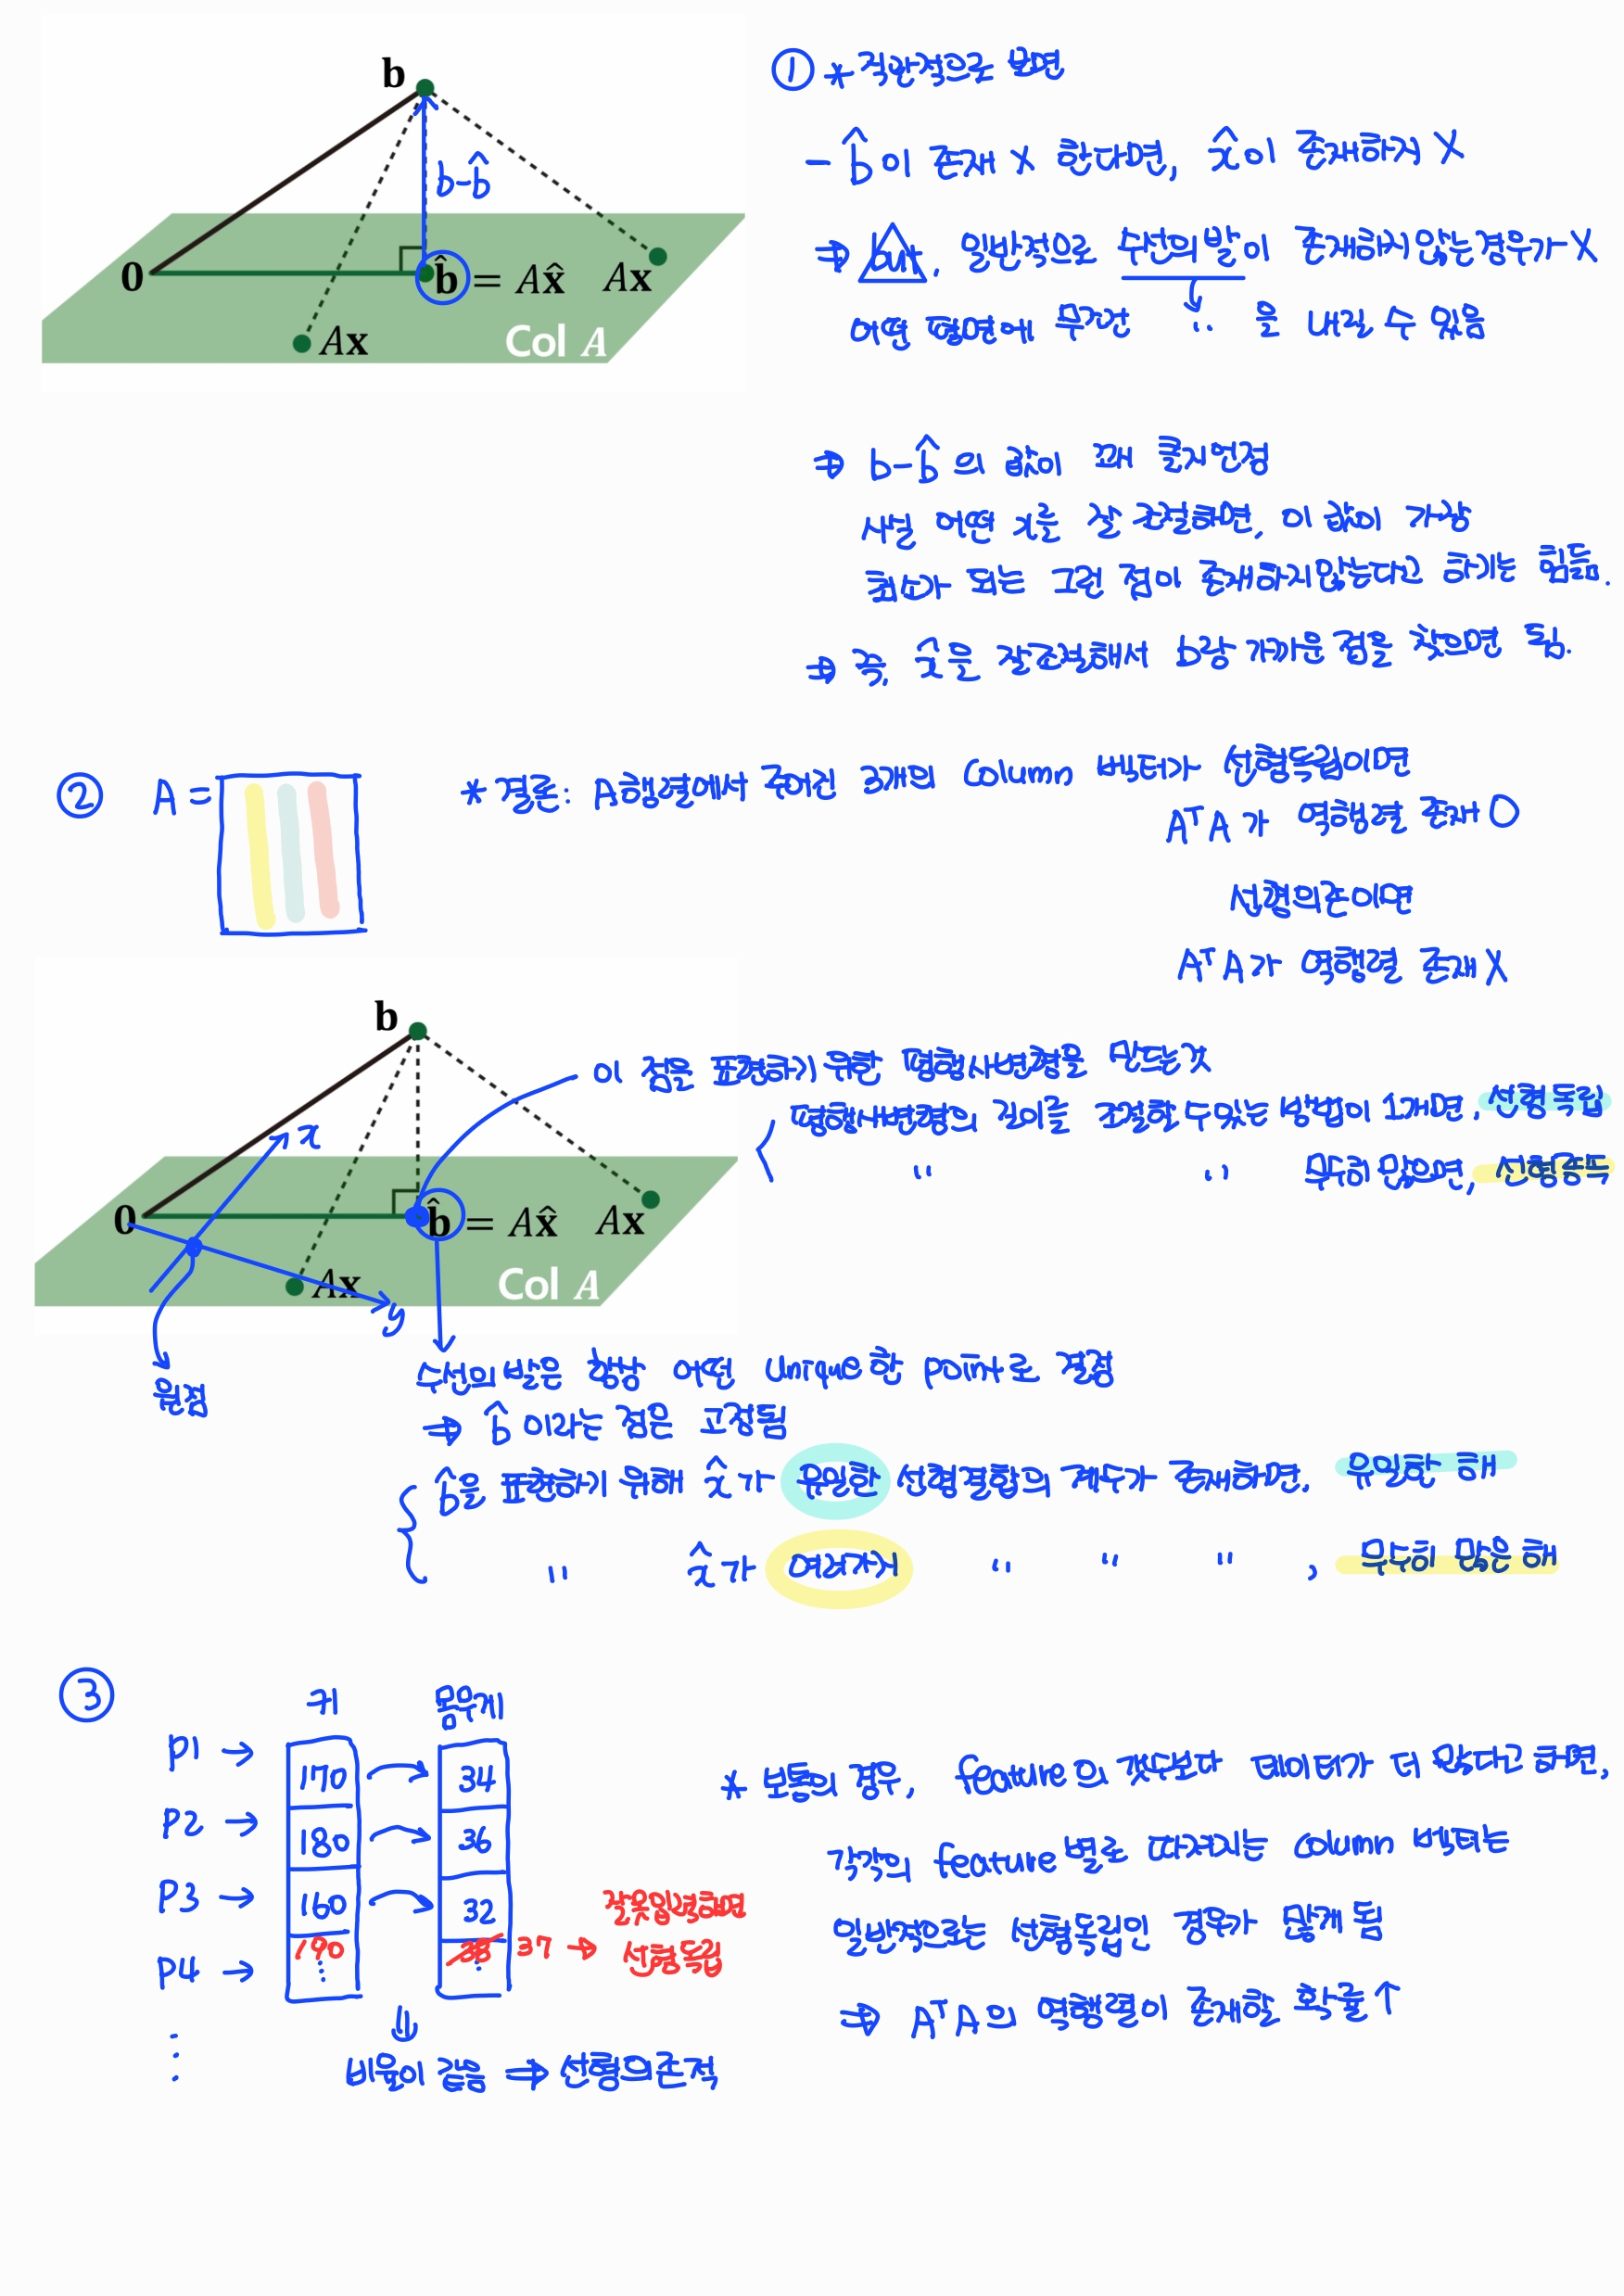 b
b-b̂
0
b̂ = Ax̂
Ax
Ax
Col A
① * 직관적으로 보면
- b̂이 존재 X 한다면, x̂이 존재하지 X
⇒ but, 일반적으로 수선의 발이 존재하지 않는 경우가 X
어떤 평면에 무조건 〃 을 내릴 수 있음
⇒ b-b̂의 값이 꽤 클지언정
사실 어떤 x를 잘 조절하면, 이 값이 가장
최소가 되는 그런 점이 존재하지 않는다고 하기는 힘듦.
⇒ 즉, x̂을 잘 조절해서 b랑 가까운 점을 찾으면 됨.
② A =
* 결론: A행렬에서 주어진 3개의 Column 벡터가 선형독립이면
AᵀA가 역행렬 존재 O
선형의존이면
AᵀA가 역행렬 존재 X
b
이 점을 표현하기 위한 평행사변형을 만드는 것
평행사변형의 길이를 조절할 수 있는 방법이 1개면, 선형독립
〃 〃 무수히 많으면, 선형종속
x
0
b̂ = Ax̂
Ax
Ax
Col A
y
원점
수선의 발은 항상 어떤 unique한 point로 결정
⇒ b̂이라는 점은 고정됨
b̂을 표현하기 위해 x̂가 유일한 선형결합의 계수가 존재하면, 유일한 해
〃 x̂가 여러가지 〃 〃 〃 , 무수히 많은 해
③
키 몸무게
P1 → 170 34
P2 → 180 36
P3 → 160 32
P4 → 190 38 37 →
잘못입력하면
선형독립
비율이 같음 ⇒ 선형의존적
* 보통의 경우, feature의 갯수보다 데이터가 더 많다고 하면,
각각의 feature별로 따져지는 column 벡터는
일반적으로는 선형독립인 경우가 많게 됨
⇒ AᵀA의 역행렬이 존재할 확률↑